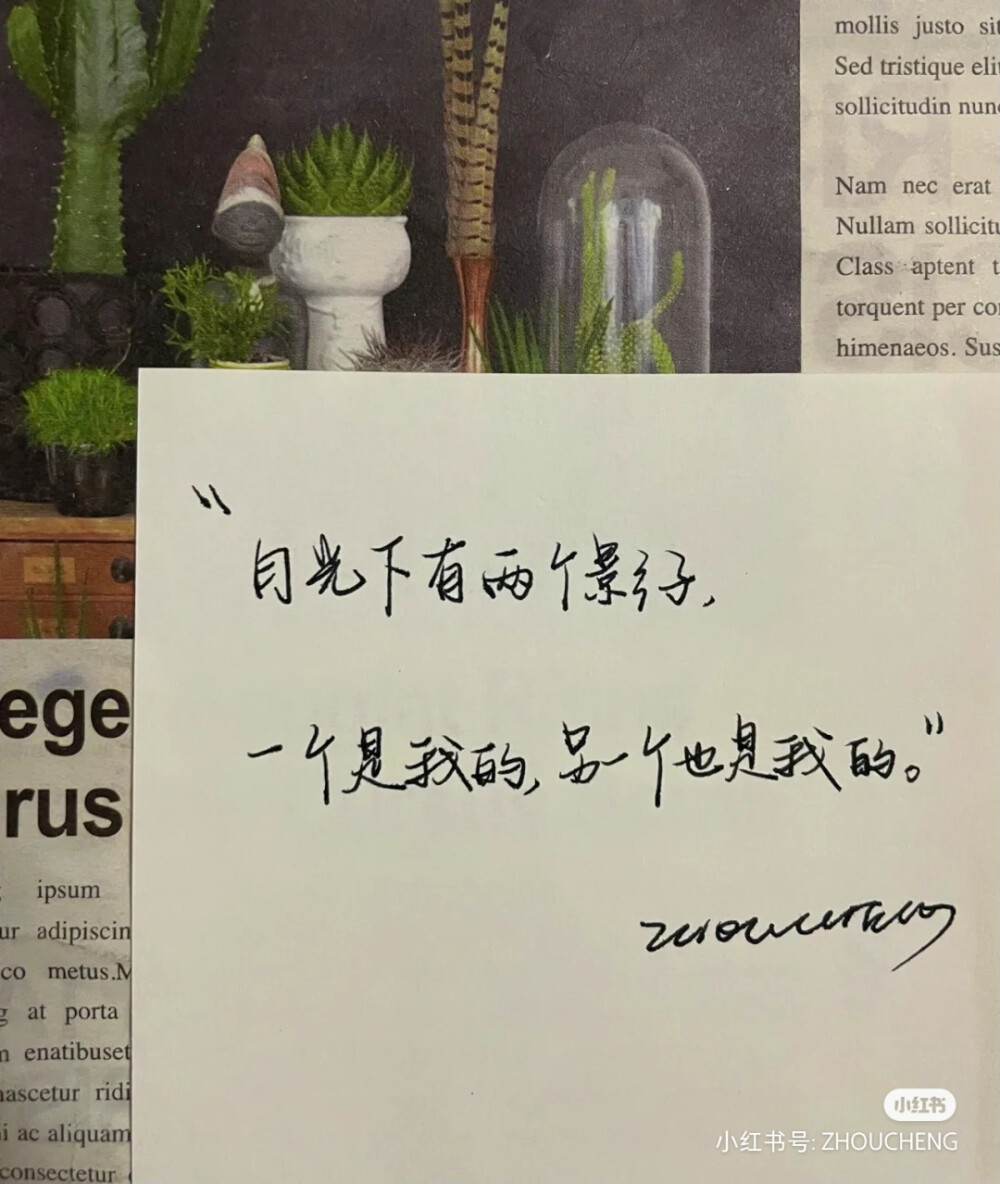 mollis justo sit
Sed tristique elit
sollicitudin nunc
Nam nec erat
Nullam sollicitu
Class aptent t
torquent per co
himenaeos. Sus
“月光下有两个影子,
一个是我的,另一个也是我的。”
ZHOUCHENG
ege
rus
ipsum
ur adipiscin
co metus.M
g at porta
m enatibuset
nascetur ridi
i ac aliquam
consectetur
小红书
小红书号: ZHOUCHENG